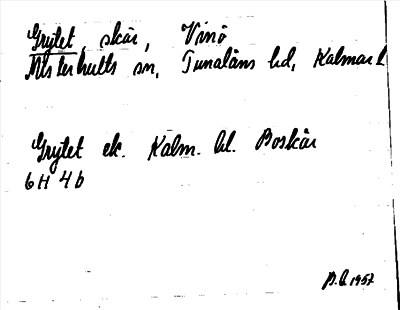 Grytet, skär, Vinö
Misterhults sn, Tunaläns hd, Kalmar l
Grytet ek. Kalm. bl. Boskär
6H 4b
B.Q. 1957